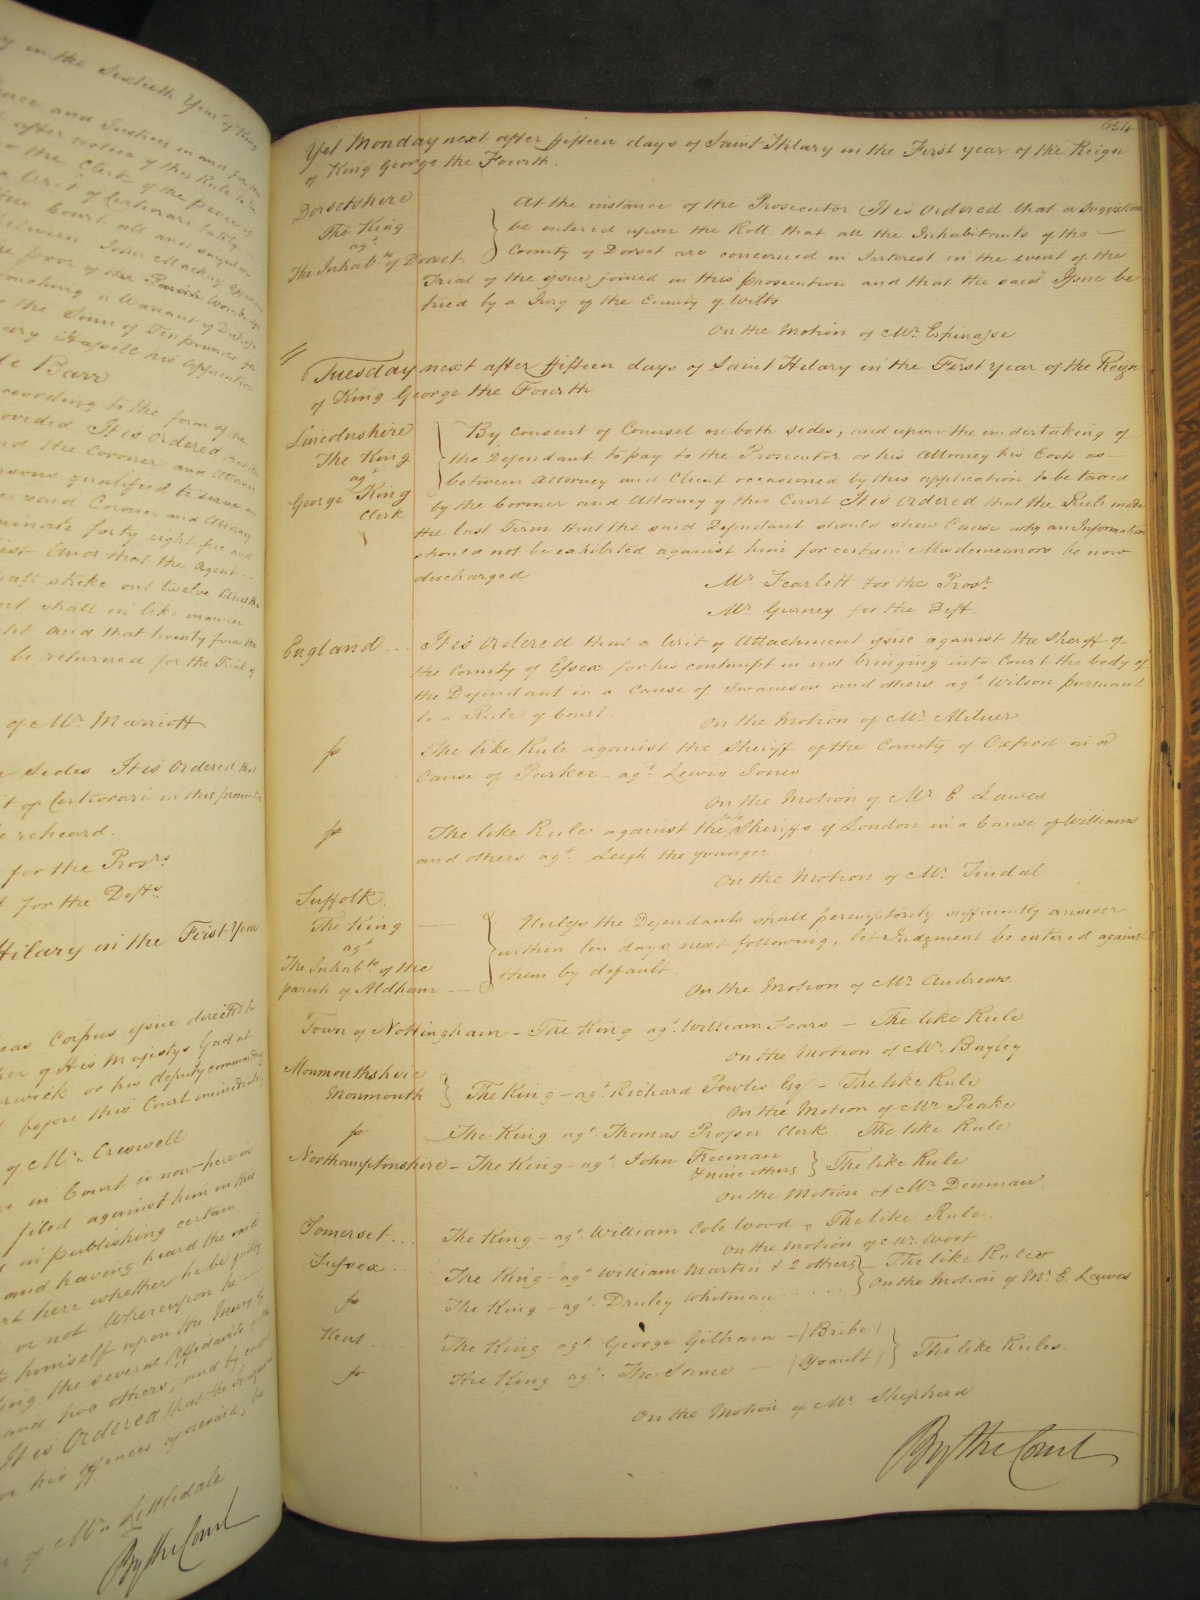 y in the Sixtieth Year of King
Peace and Justices in and for the
after notice of this Rule to be
the Clerk of the peace of
a Writ of Certiorari lately
this Court all and singular
between John Mackey
the poor of the Parish
touching a Warrant of Distress
the Sum of Ten pounds for
Hassell his Apprentice
de Barr
according to the form of the
provided It is Ordered that the
and the Coroner and Attorney
persons qualified to serve on
said Coroner and Attorney
nominate forty eight free and
list And that the Agent
shall strike out twelve And the
shall in like manner
and that twenty four the
be returned for the Trial of
of Mr. Marriott
Sides It is Ordered that
Writ of Certiorari in this prosecution
be reheard.
for the Prosrs
for the Defts
Hilary in the First Year
Corpus issue directed to
of His Majestys Gaol at
or his deputy commanding
before this Court immediately
of Mr. Creswell
in Court is now here in
filed against him in this
in publishing certain
and having heard the said
here whether he be guilty
or not Whereupon he
himself upon the Mercy of
the several Affidavits of the
and two others, and by
It is Ordered that the
his offences aforesaid, be
of Mr. Littledale
By the Court
634
Yet Monday next after fifteen days of Saint Hilary in the First year of the Reign
of King George the Fourth.
Dorsetshire
The King
agt.
The Inhabts of Dorset.
At the instance of the Prosecutor It is Ordered that a Suggestion
be entered upon the Roll that all the Inhabitants of the
County of Dorset are concerned in Interest in the event of the
Trial of the Issue joined in this prosecution and that the said Issue be
tried by a Jury of the County of Wilts
On the Motion of Mr. Espinasse
Tuesday next after fifteen days of Saint Hilary in the First Year of the Reign
of King George the Fourth
Lincolnshire
The King
agt
George King
Clerk
By consent of Counsel on both sides, and upon the undertaking of
the Defendant to pay to the Prosecutor or his Attorney his Costs as
between Attorney and Client occasioned by this application to be taxed
by the Coroner and Attorney of this Court It is Ordered that the Rule made
the last Term that the said Defendant should show Cause why an Information
should not be exhibited against him for certain Misdemeanors be now
discharged
Mr. Scarlett for the Prosr.
Mr. Gurney for the Deft.
England... It is Ordered that a Writ of Attachment issue against the Sheriff of
the County of Essex for his contempt in not bringing into Court the body of
the Defendant in a Cause of Swainson and others agt. Wilson pursuant
to a Rule of Court.
On the Motion of Mr. Milner
The like Rule against the Sheriff of the County of Oxford in a
Cause of Parker agt. Lewis Jones
On the Motion of Mr. E Lawes
The like Rule against the Sheriffs of London in a Cause of Williams
and others agt. Leigh the younger
On the Motion of Mr. Tindal
Suffolk.
The King
agt
The Inhabts of the
parish of Aldham
Unless the Defendants shall peremptorily sufficiently answer
within ten days next following, let Judgment be entered against
them by default.
On the Motion of Mr. Andrews
Town of Nottingham - The King agt. William Soars - The like Rule
On the Motion of Mr. Bayley
Monmouthshire
Monmouth
The King - agt. Richard Powles Esq. - The like Rule
On the Motion of Mr. Peake
The King agt. Thomas Prosser Clerk. The like Rule
Northamptonshire - The King - agt. John Freeman & nine others } The like Rule
On the Motion of Mr. Denman.
Somerset... The King - agt. William Cole Wood - The like Rule.
On the Motion of Mr. West
Sussex... The King - agt. William Martin & 2 others - The like Rules
The King - agt. Druley Whitman
On the Motion of Mr. E. Lawes
Kent.... The King agt. George Gilham - (Bribe)
The King agt. The Same - (Assault)
The like Rules.
On the Motion of Mr. Shepherd
By the Court